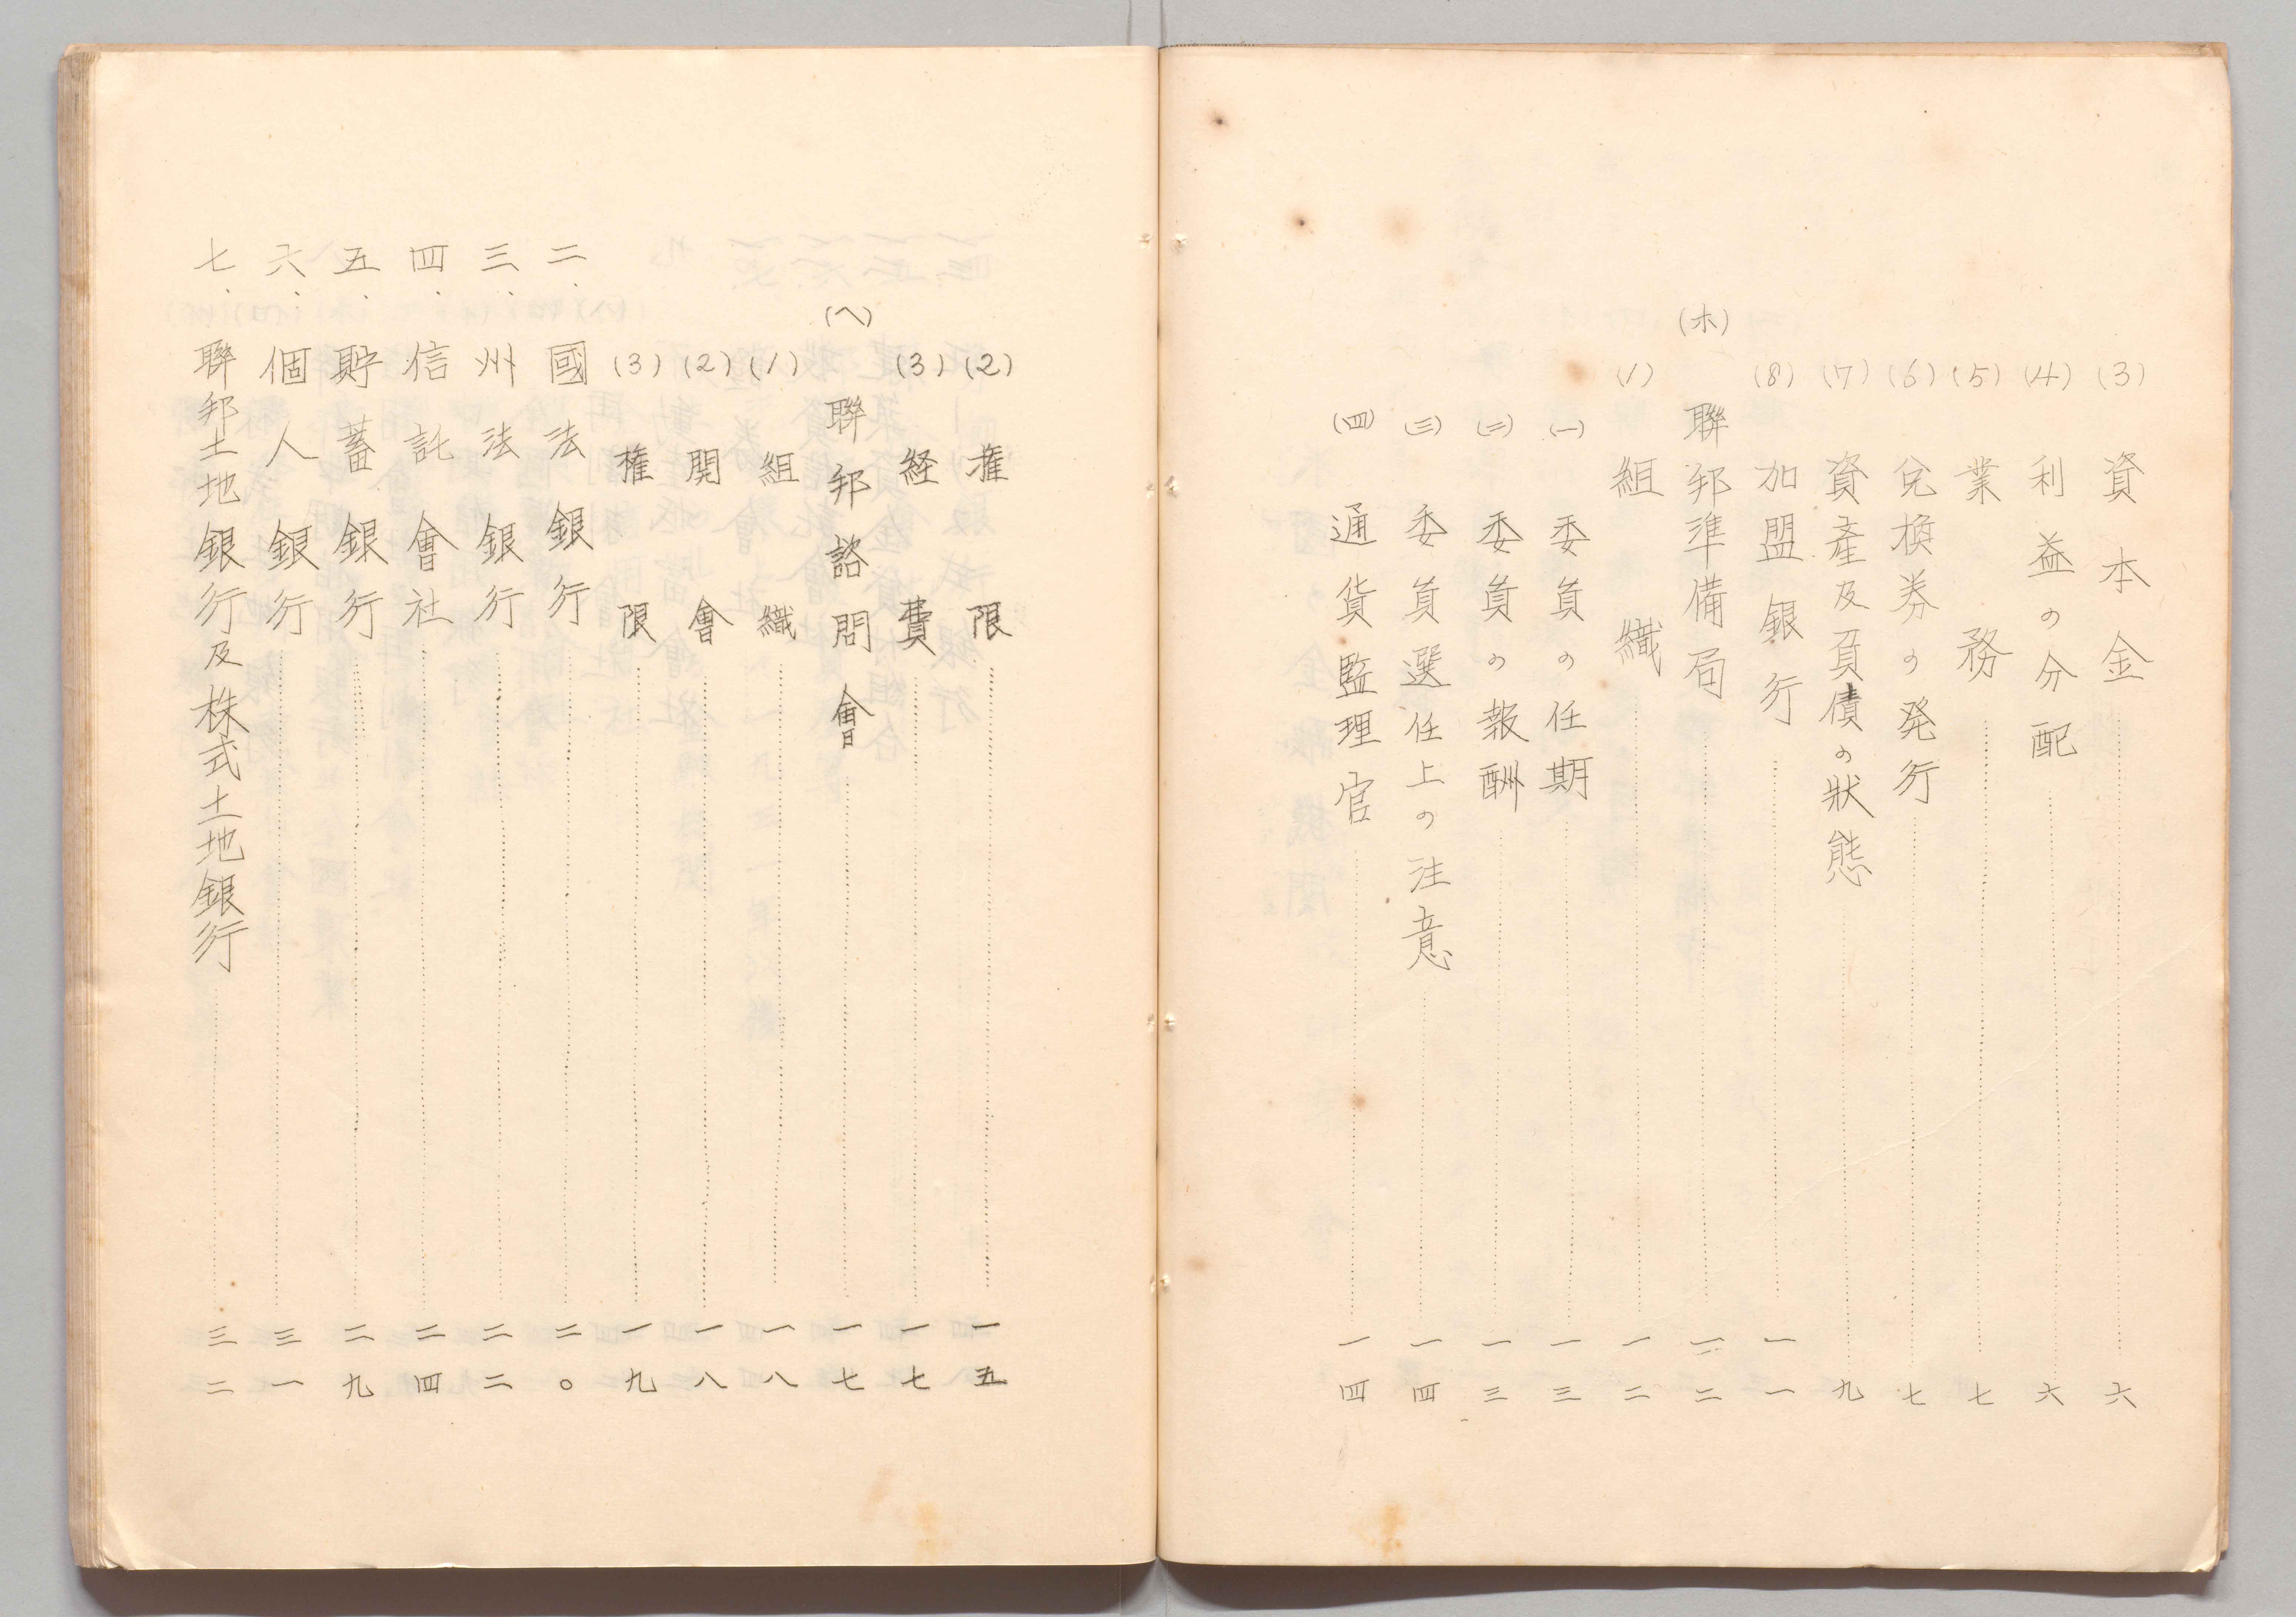 (3) 資本金 六
(4) 利益の分配 六
(5) 業務 七
(6) 兌換券の発行 七
(7) 資產及負債の狀態 九
(8) 加盟銀行 一一
(ホ) 聯邦準備局 一二
(1) 組織 一二
(一) 委員の任期 一三
(二) 委員の報酬 一三
(三) 委員選任上の注意 一四
(四) 通貨監理官 一四
(2) 権限 一五
(3) 経費 一七
(ヘ) 聯邦諮問會 一七
(1) 組織 一八
(2) 開會 一八
(3) 権限 一九
二、國法銀行 二〇
三、州法銀行 二二
四、信託會社 二四
五、貯蓄銀行 二九
六、個人銀行 三一
七、聯邦土地銀行及株式土地銀行 三二